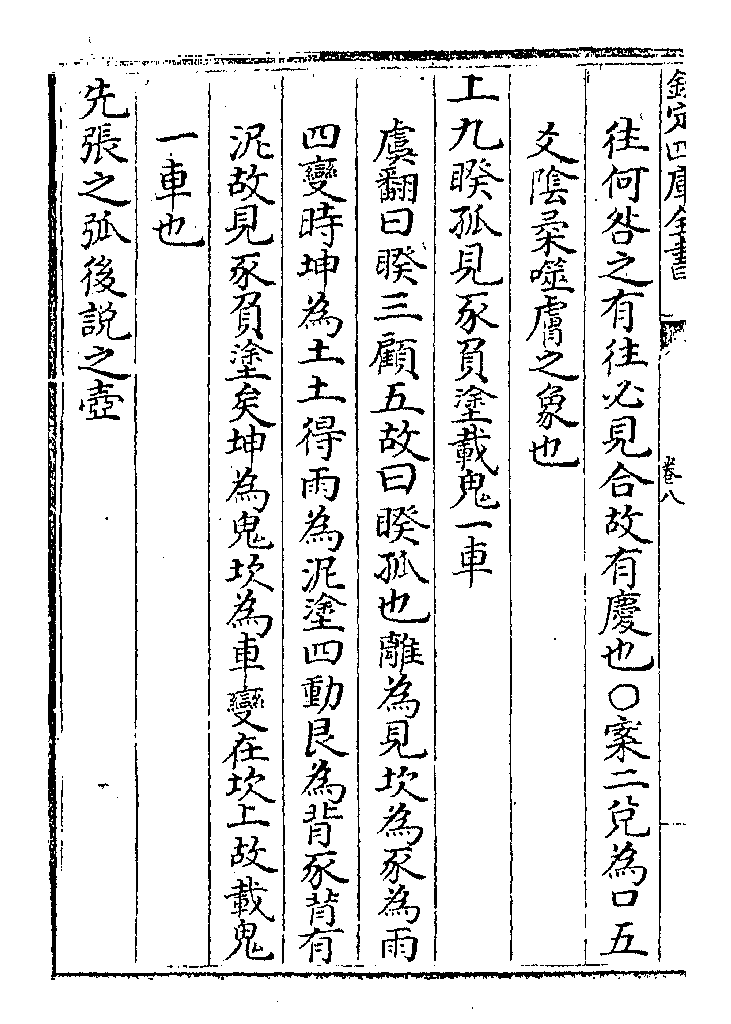 欽定四庫全書
卷八
往何咎之有往必見合故有慶也○案二兌為口五
爻陰柔噬膚之象也
上九睽孤見豕負塗載鬼一車
虞翻曰睽三顧五故曰睽孤也離為見坎為豕為雨
四變時坤為土土得雨為泥塗四動艮為背豕背有
泥故見豕負塗矣坤為鬼坎為車變在坎上故載鬼
一車也
先張之弧後說之壺